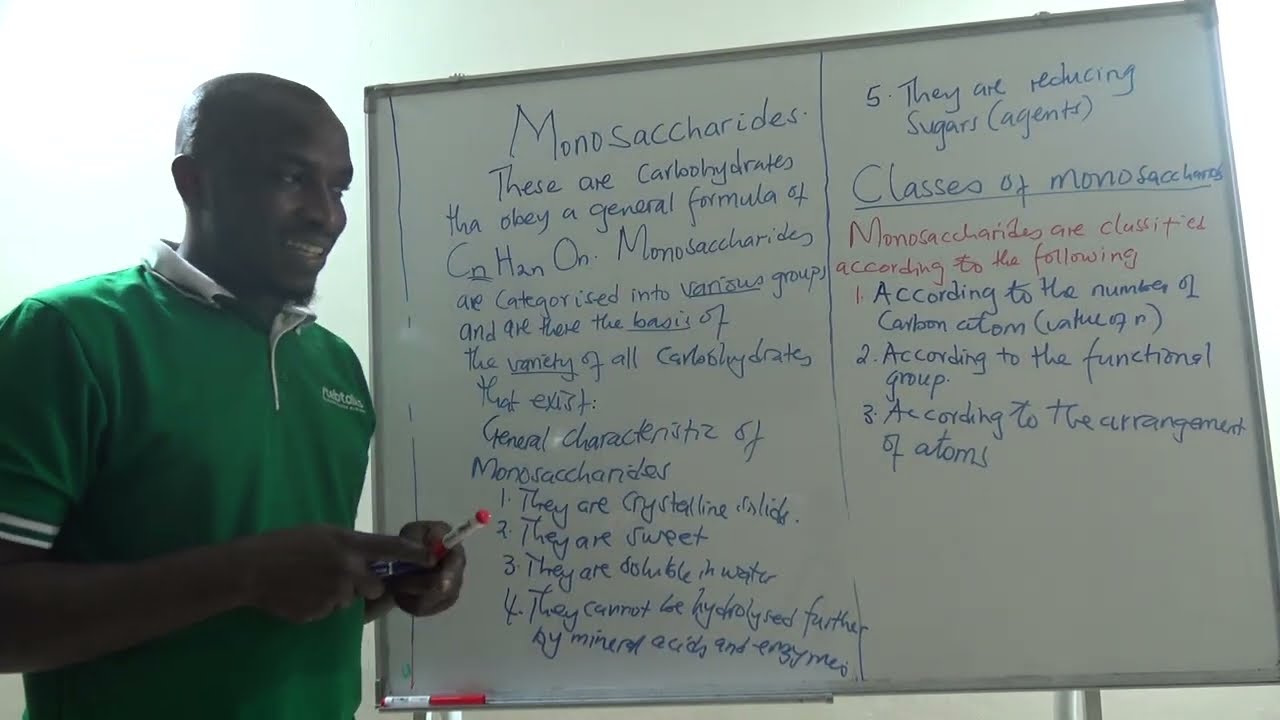 Monosaccharides.
These are Carbohydrates
tha obey a general formula of
CnH2nOn. Monosaccharides
are Categorised into various groups
and are there the basis of
the variety of all Carbohydrates
that exist:
General characteristic of
Monosaccharides
1. They are crystalline solids.
2. They are sweet
3. They are soluble in water
4. They cannot be hydrolysed further
by mineral acids and enzymes.
5. They are reducing
Sugars (agents)
Classes of monosaccharides
Monosaccharides are classified
according to the following
1. According to the number of
Carbon atom (value of n)
2. According to the functional
group.
3. According to the arrangement
of atoms